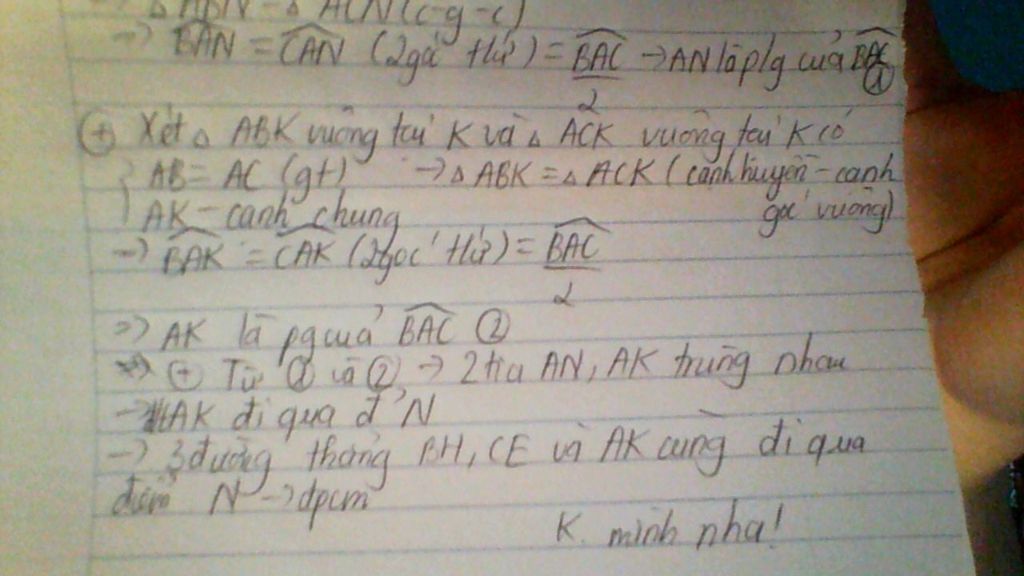 → △ ABN = △ ACN (c-g-c)
→ BAN = CAN (2góc t/ứ) = BAC/2 → AN là p/g của BAC ①
⊕ Xét △ ABK vuông tại K và △ ACK vuông tại K có
AB = AC (gt) → △ ABK = △ ACK (cạnh huyền - cạnh
AK - cạnh chung góc vuông)
→ BAK = CAK (2góc t/ứ) = BAC/2
=> AK là pg của BAC ②
⊕ Từ ① và ② → 2 tia AN, AK trùng nhau
→ AK đi qua đ' N
→ 3 đường thẳng BH, CE và AK cùng đi qua
điểm N → đpcm
K mình nha!